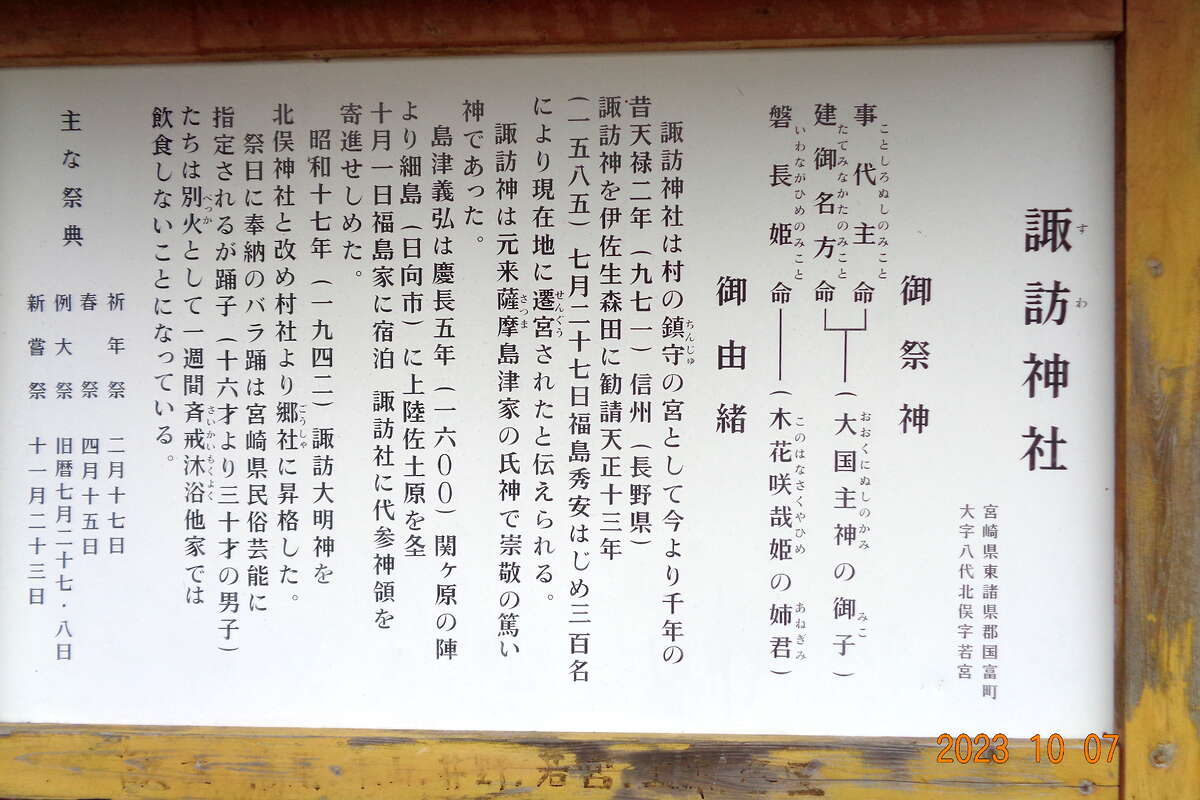 諏訪神社
すわ
宮崎県東諸県郡国富町
大字八代北俣字若宮
御祭神
事代主命
ことしろぬしのみこと
建御名方命
たてみなかたのみこと
(大国主神の御子)
おおくにぬしのかみ みこ
磐長姫命
いわながひめのみこと
(木花咲哉姫の姉君)
このはなさくやひめ あねぎみ
御由緒
諏訪神社は村の鎮守の宮として今より千年の
ちんじゅ
昔天禄二年(九七一)信州(長野県)
諏訪神を伊佐生森田に勧請天正十三年
(一五八五)七月二十七日福島秀安はじめ三百名
により現在地に遷宮されたと伝えられる。
せんぐう
諏訪神は元来薩摩島津家の氏神で崇敬の篤い
さつま
神であった。
島津義弘は慶長五年(一六〇〇)関ヶ原の陣
より細島(日向市)に上陸佐土原を夆
十月一日福島家に宿泊 諏訪社に代参神領を
寄進せしめた。
昭和十七年(一九四二)諏訪大明神を
北俣神社と改め村社より郷社に昇格した。
ごうしゃ
祭日に奉納のバラ踊は宮崎県民俗芸能に
指定されるが踊子(十六才より三十才の男子)
たちは別火として一週間斉戒沐浴他家では
べっか さいかいもくよく
飲食しないことになっている。
主な祭典
祈年祭 二月十七日
春祭 四月十五日
例大祭 旧暦七月二十七・八日
新嘗祭 十一月二十三日
2023 10 07